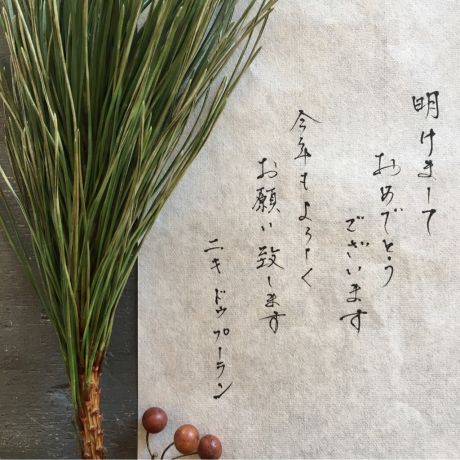 明けまして
おめでとう
ございます
今年もよろしく
お願い致します
ニキ ドゥ プーラン